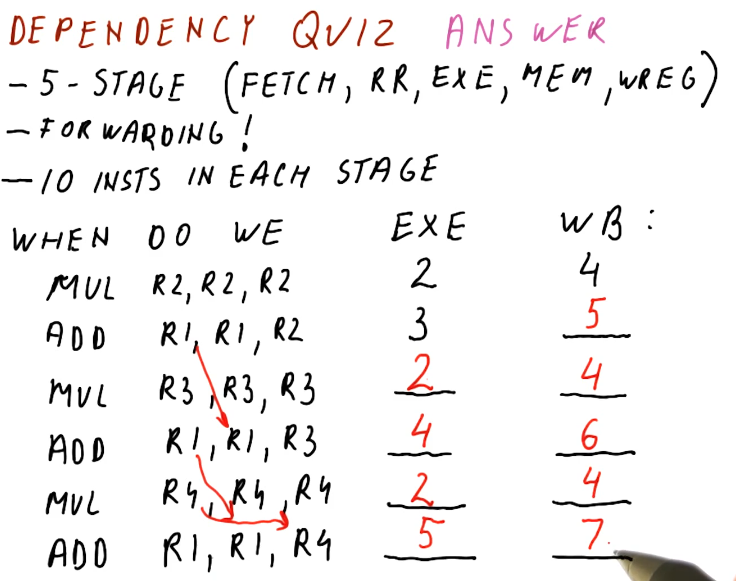 DEPENDENCY QUIZ ANSWER
- 5-STAGE (FETCH, RR, EXE, MEM, WREG)
- FORWARDING!
- 10 INSTS IN EACH STAGE
WHEN DO WE EXE WB:
MUL R2, R2, R2 2 4
ADD R1, R1, R2 3 5
MUL R3, R3, R3 2 4
ADD R1, R1, R3 4 6
MUL R4, R4, R4 2 4
ADD R1, R1, R4 5 7